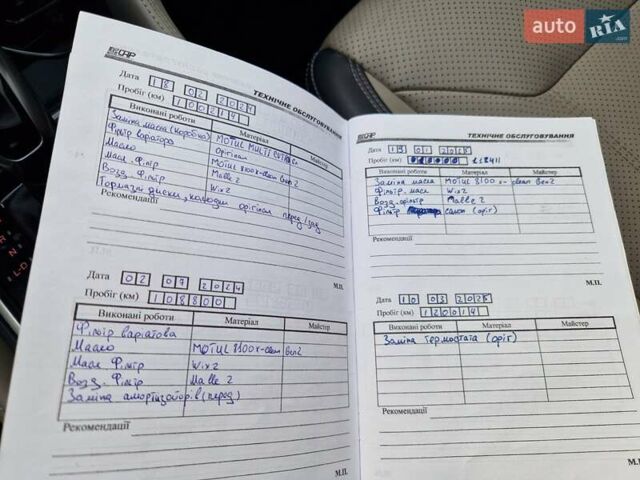 auto RIA .com
ТЕХНІЧНЕ ОБСЛУГОВУВАННЯ
Дата 18 02 2024
Пробіг (км) 100214
Виконані роботи Матеріал Майстер
Заміна масла (коробка) MOTUL MULTI
Фільтр варіатора Оригінал
Масло MOTUL 8100 x-clean Gen2
Масл. Фільтр Malle 2
Возд. Фільтр Wix 2
Тормазні диски, колодки оригінал перед/зад
Рекомендації
М.П.
Дата 02 07 2024
Пробіг (км) 108800
Виконані роботи Матеріал Майстер
Фільтр варіатова
Масло MOTUL 8100 x-clean Gen2
Масл Фільтр Wix 2
Возд. Фільтр Malle 2
Заміна амортизаторів (перед)
Рекомендації
М.П.
ТЕХНІЧНЕ ОБСЛУГОВУВАННЯ
Дата 19 01 2025
Пробіг (км) 118411
Виконані роботи Матеріал Майстер
Заміна масла MOTUL 8100 x-clean Gen2
Фільтр. масл Wix 2
Возд. фільтр Malle 2
Фільтр салон (оріг)
Рекомендації
М.П.
Дата 10 03 2025
Пробіг (км) 120014
Виконані роботи Матеріал Майстер
Заміна термостата (оріг)
Рекомендації
М.П.